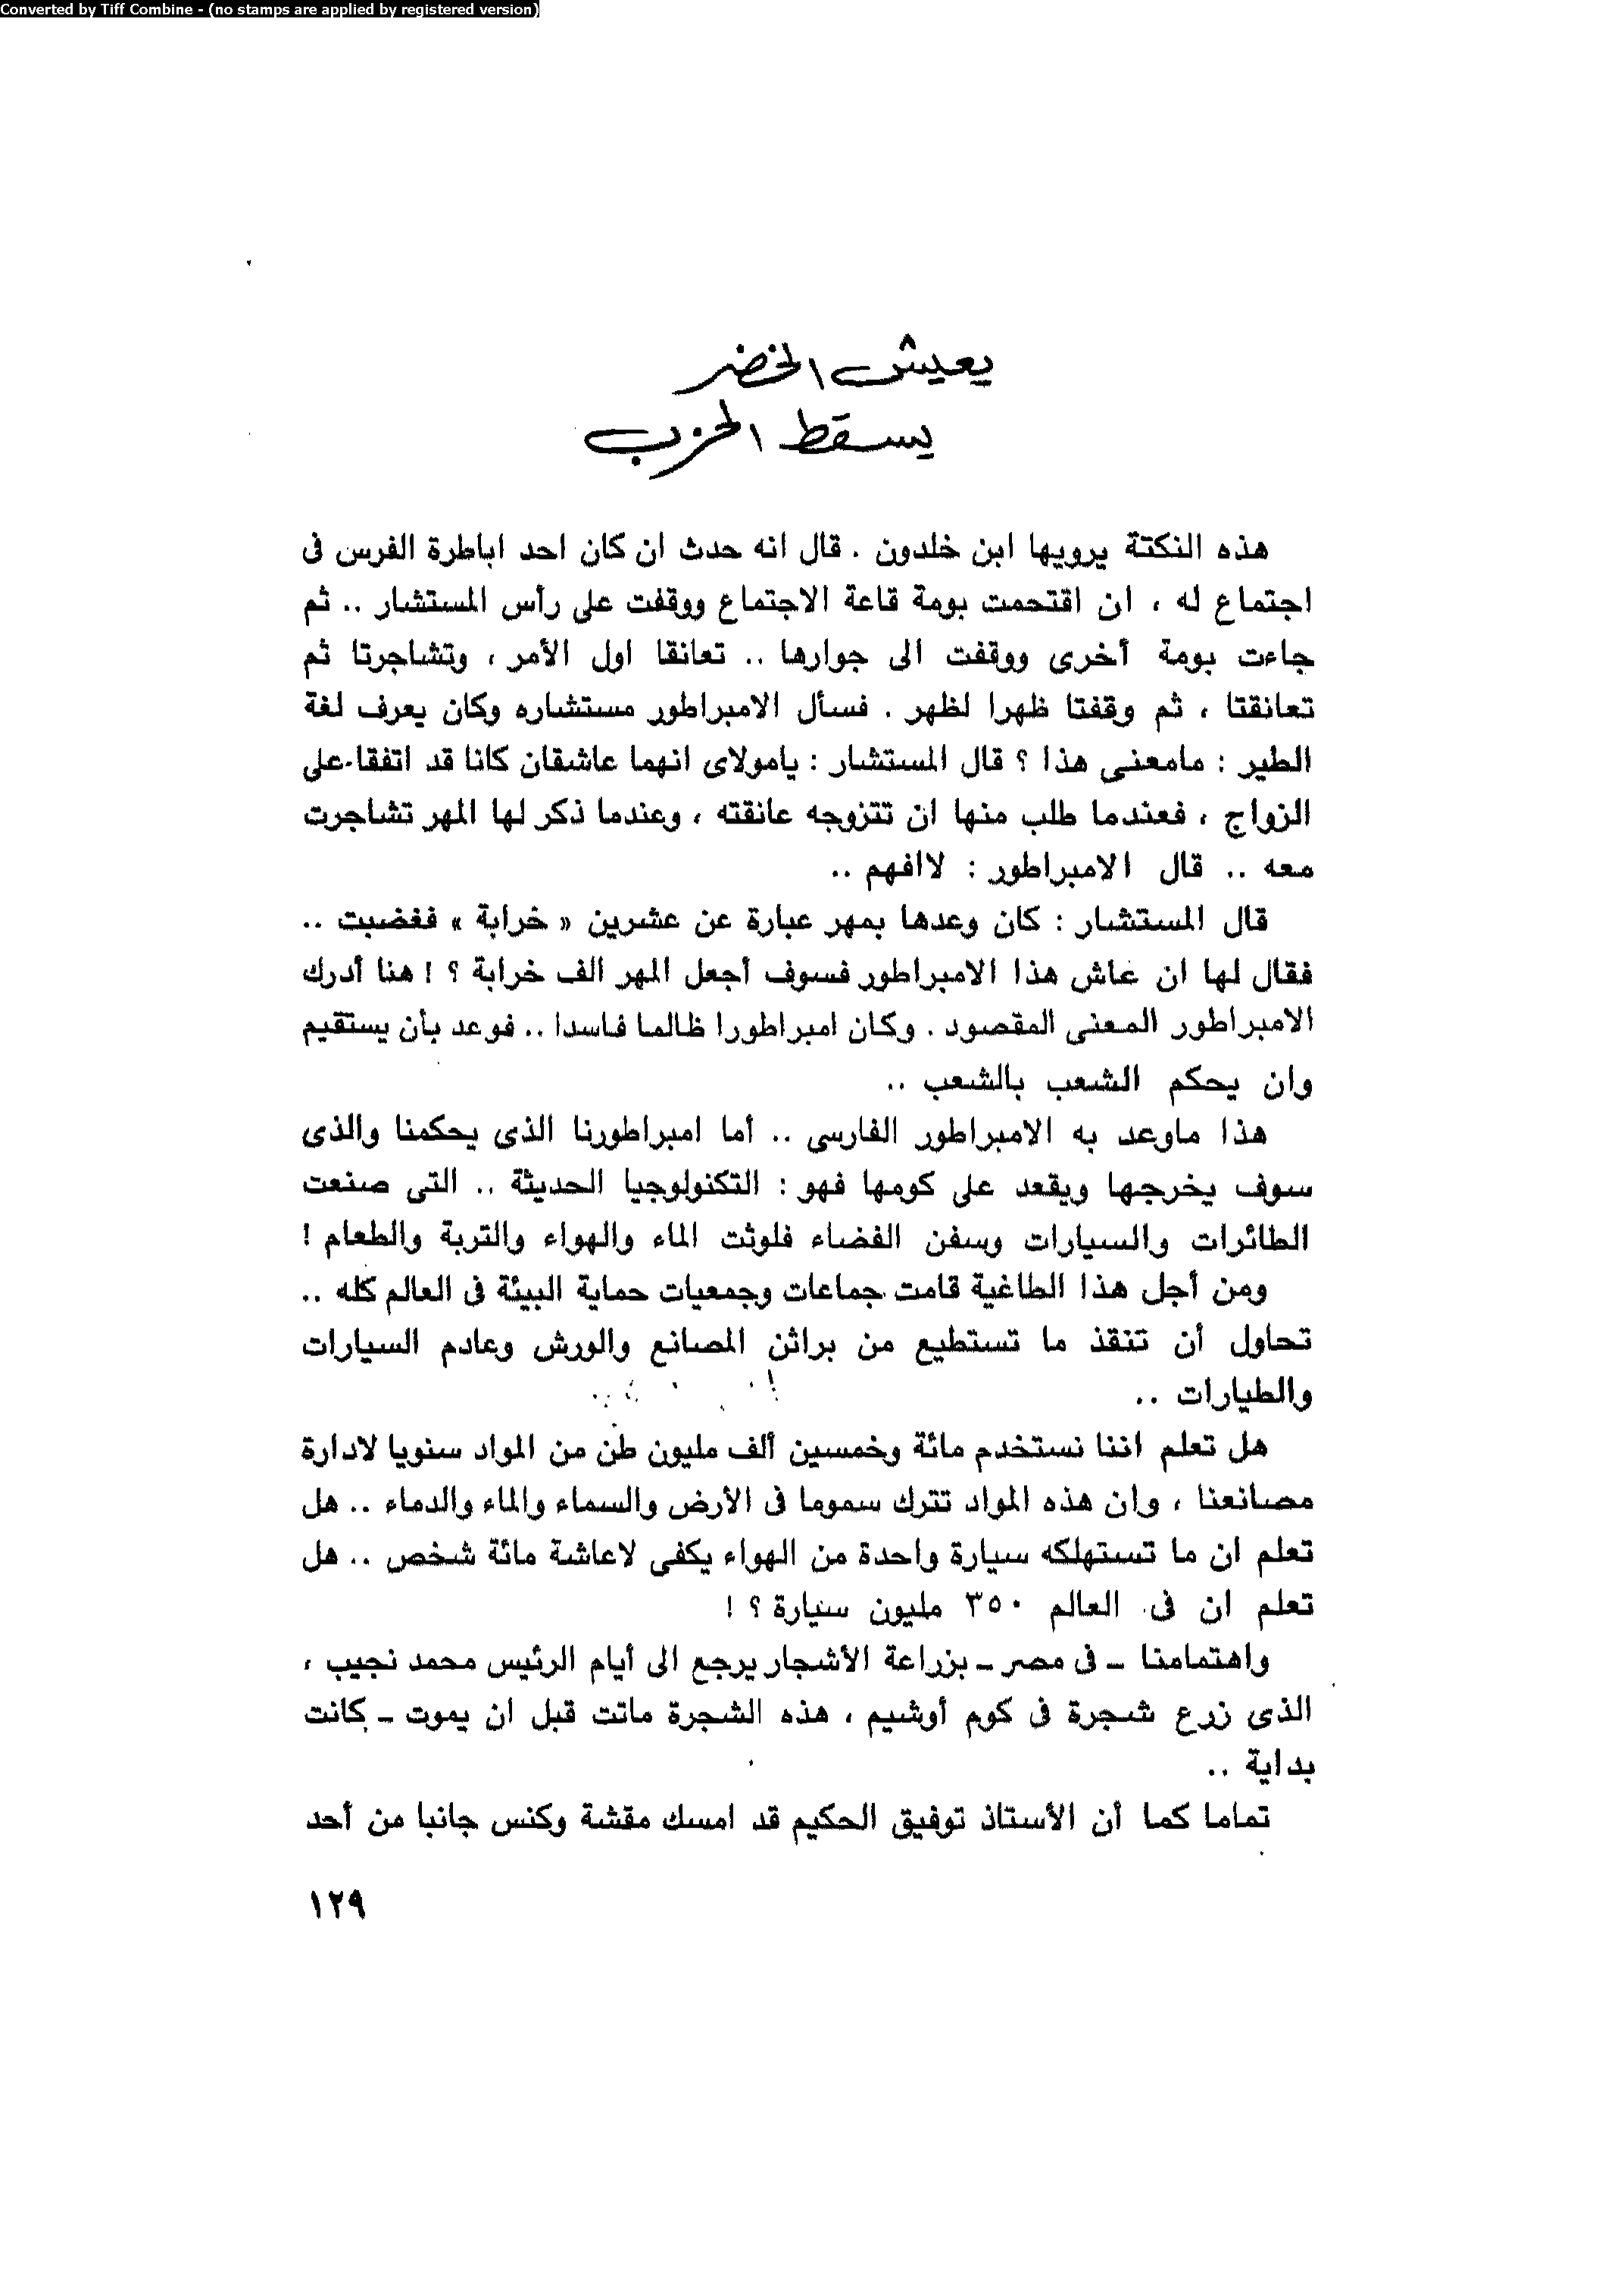 Converted by Tiff Combine - (no stamps are applied by registered version)
يعيش الخضر
يسقط الحزب
هذه النكتة يرويها ابن خلدون . قال انه حدث ان كان احد اباطرة الفرس فى
اجتماع له ، ان اقتحمت بومة قاعة الاجتماع ووقفت على رأس المستشار .. ثم
جاءت بومة أخرى ووقفت الى جوارها .. تعانقا اول الأمر ، وتشاجرتا ثم
تعانقتا ، ثم وقفتا ظهرا لظهر . فسأل الامبراطور مستشاره وكان يعرف لغة
الطير : مامعنى هذا ؟ قال المستشار : يامولاى انهما عاشقان كانا قد اتفقا على
الزواج ، فعندما طلب منها ان تتزوجه عانقته ، وعندما ذكر لها المهر تشاجرت
معه .. قال الامبراطور : لاافهم ..
قال المستشار : كان وعدها بمهر عبارة عن عشرين « خرابة » فغضبت ..
فقال لها ان عاش هذا الامبراطور فسوف أجعل المهر الف خرابة ؟ ! هنا أدرك
الامبراطور المعنى المقصود . وكان امبراطورا ظالما فاسدا .. فوعد بأن يستقيم
وان يحكم الشعب بالشعب ..
هذا ماوعد به الامبراطور الفارسى .. أما امبراطورنا الذى يحكمنا والذى
سوف يخرجها ويقعد على كومها فهو : التكنولوجيا الحديثة .. التى صنعت
الطائرات والسيارات وسفن الفضاء فلوثت الماء والهواء والتربة والطعام !
ومن أجل هذا الطاغية قامت جماعات وجمعيات حماية البيئة فى العالم كله ..
تحاول أن تنقذ ما تستطيع من براثن المصانع والورش وعادم السيارات
والطيارات ..
هل تعلم اننا نستخدم مائة وخمسين ألف مليون طن من المواد سنويا لادارة
مصانعنا ، وان هذه المواد تترك سموما فى الأرض والسماء والماء والدماء .. هل
تعلم ان ما تستهلكه سيارة واحدة من الهواء يكفى لاعاشة مائة شخص .. هل
تعلم ان فى العالم ٣٥٠ مليون سيارة ؟ !
واهتمامنا - فى مصر - بزراعة الأشجار يرجع الى أيام الرئيس محمد نجيب ،
الذى زرع شجرة فى كوم أوشيم ، هذه الشجرة ماتت قبل ان يموت - كانت
بداية ..
تماما كما أن الأستاذ توفيق الحكيم قد امسك مقشة وكنس جانبا من أحد
١٢٩